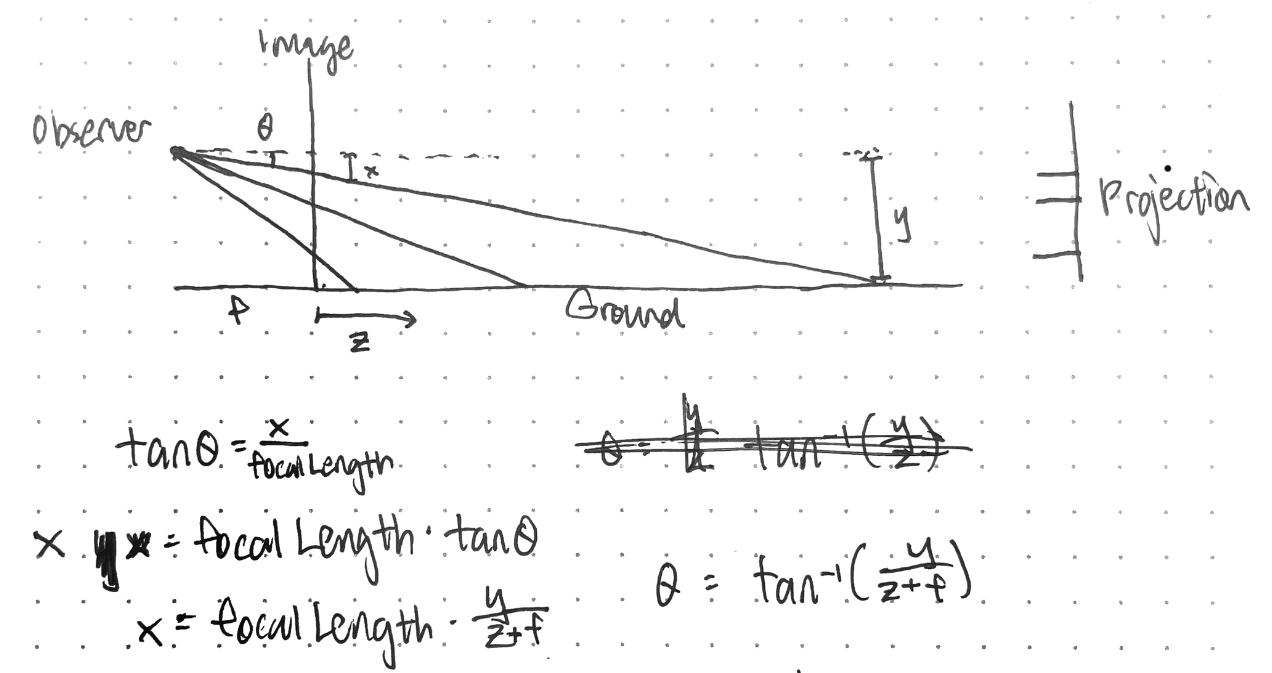 Image
Observer
θ
x
y
Projection
f
z
Ground
tanθ = x / focal Length
θ = tan⁻¹(y/z)
x = focal Length · tanθ
θ = tan⁻¹(y/(z+f))
x = focal Length · y/(z+f)